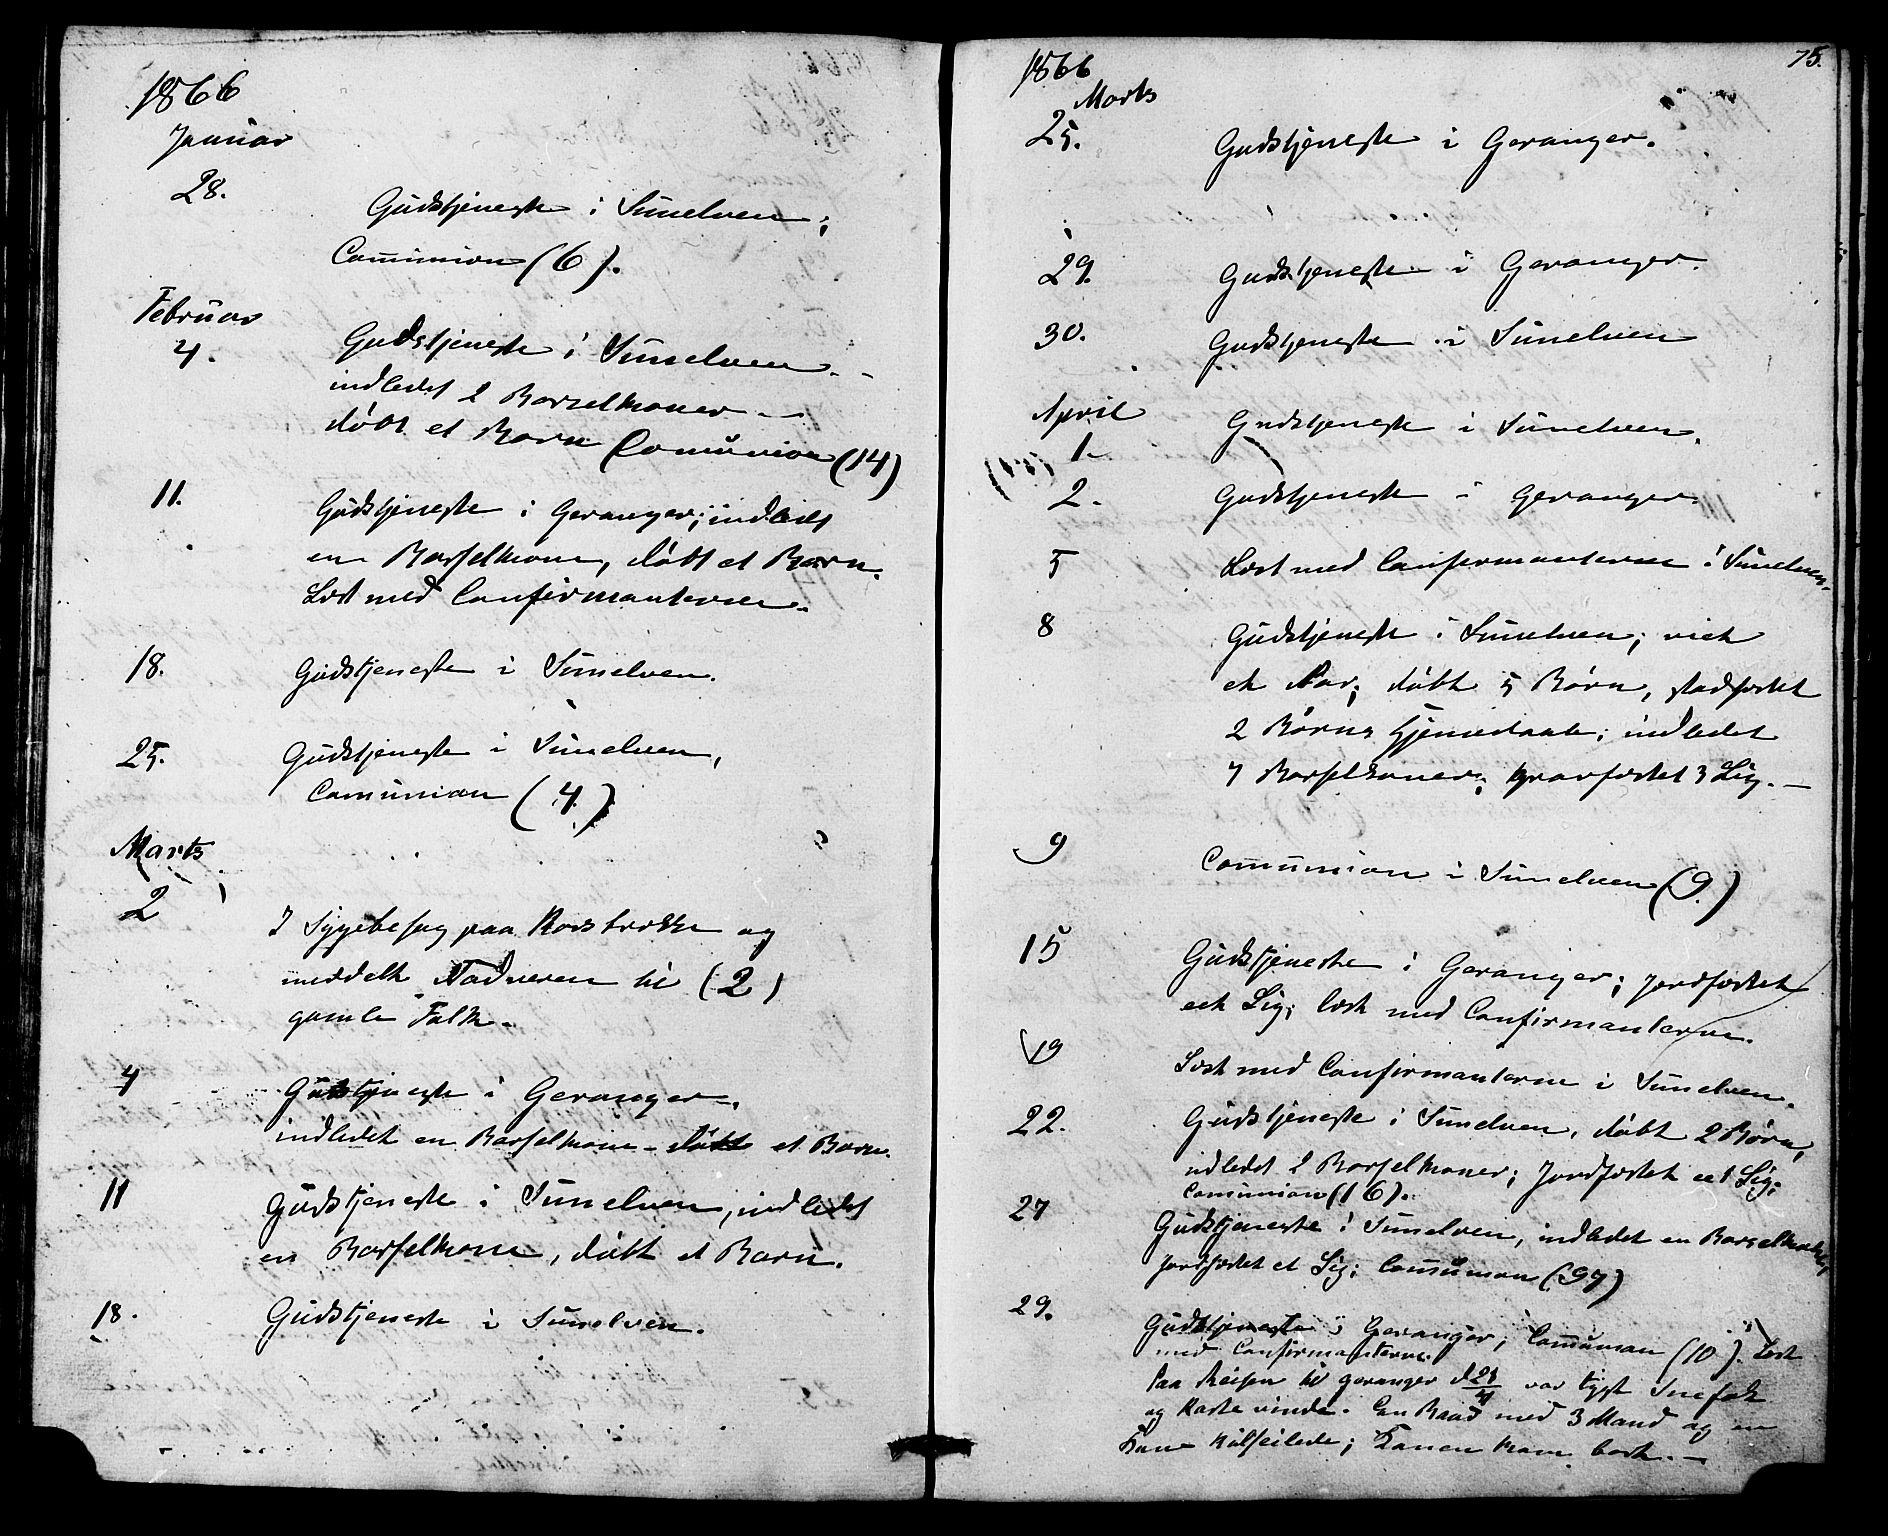 1866
Januar
28.
Gudstjeneste i Sunelven;
Communion (6).
Februar
4.
Gudstjeneste i Sunelven -
indledet 2 Barselkoner -
døbt et Barn Comunion (14)
11.
Gudstjeneste i Geranger; indledt
en Barselkone, døbt et Barn.
Læst med Confirmanterne.
18.
Gudstjeneste i Sunelven.
25.
Gudstjeneste i Sunelven,
Comunion (4.)
Marts
2
I Sygebesøg paa Korsbrekke og
meddelt Nadveren til (2)
gamle Folk.
4
Gudstjeneste i Geranger.
indledet en Barselkone - døbt et Barn.
11
Gudstjeneste i Sunelven, indledet
en Barselkone, døbt et Barn.
18.
Gudstjeneste i Sunelven.
75.
1866
Marts
25.
Gudstjeneste i Geranger.
29.
Gudstjeneste i Geranger.
30.
Gudstjeneste i Sunelven
April
1.
Gudstjeneste i Sunelven.
2.
Gudstjeneste i Geranger.
5
Læst med Confirmanterne i Sunelven.
8
Gudstjeneste i Sunelven; viet
et Par; døbt 5 Børn, stadfæstet
2 Børns Hjemmedaab; indledet
7 Barselkoner; gravfæstet 3 Lig. -
9
Communion i Sunelven (9.)
15
Gudstjeneste i Geranger; Jordfæstet
eet Lig; læst med Confirmanterne.
19
Læst med Confirmanterne i Sunelven.
22.
Gudstjeneste i Sunelven, døbt 2 Børn,
indledet 2 Barselkoner; Jordfæstet eet Lig;
Comunion (16).
27
Gudstjeneste i Sunelven, indledet en Barselkone,
Jordfæstet et Lig; Communion (97)
29.
Gudstjeneste i Geranger; Communion (10). Læst
med Confirmanterne.
Paa Reisen til Geranger d 28/4 var tygt Snefok
og Kastevinde. En Baad med 3 Mand og en
Kone kulseilede; Konen kom bort. -